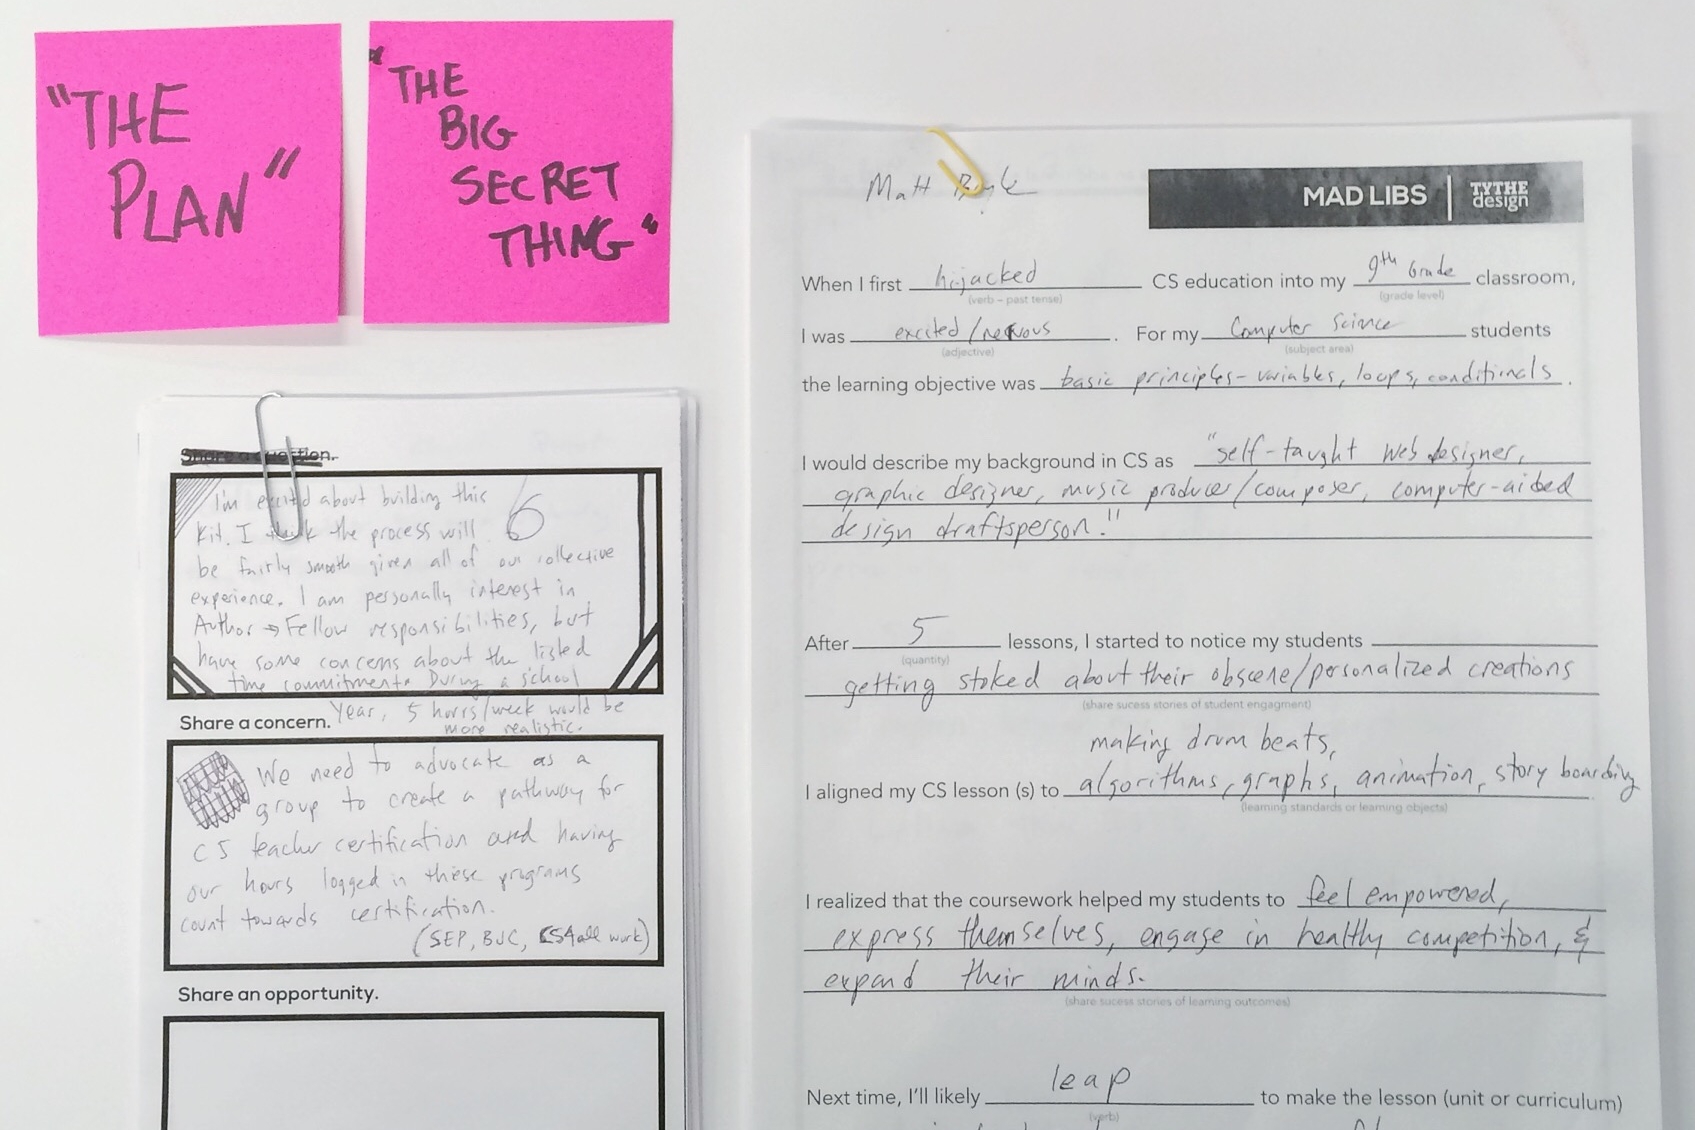 "THE
PLAN"
"THE
BIG
SECRET
THING"
Share a question.
I'm excited about building this
Kit. I think the process will
6
be fairly smooth given all of our collective
experience. I am personally interest in
Author → Fellow responsibilities, but
have some concerns about the listed
time commitment. During a school
year, 5 hours/week would be
more realistic.
Share a concern.
We need to advocate as a
group to create a pathway for
CS teacher certification and having
our hours logged in these programs
count towards certification.
(SEP, BJC, CS4all work)
Share an opportunity.
Matt
MAD LIBS | TYTHE
design
When I first hijacked CS education into my 9th Grade classroom,
(verb – past tense) (grade level)
I was excited/nervous. For my Computer Science students
(adjective) (subject area)
the learning objective was basic principles - variables, loops, conditionals.
I would describe my background in CS as "self-taught web designer,
graphic designer, music producer/composer, computer-aided
design draftsperson."
After 5 lessons, I started to notice my students
(quantity)
getting stoked about their obscene/personalized creations
(share sucess stories of student engagment)
making drum beats,
I aligned my CS lesson (s) to algorithms, graphs, animation, story boarding
(learning standards or learning objects)
I realized that the coursework helped my students to feel empowered,
express themselves, engage in healthy competition, &
expand their minds.
(share sucess stories of learning outcomes)
Next time, I'll likely leap to make the lesson (unit or curriculum)
(verb)